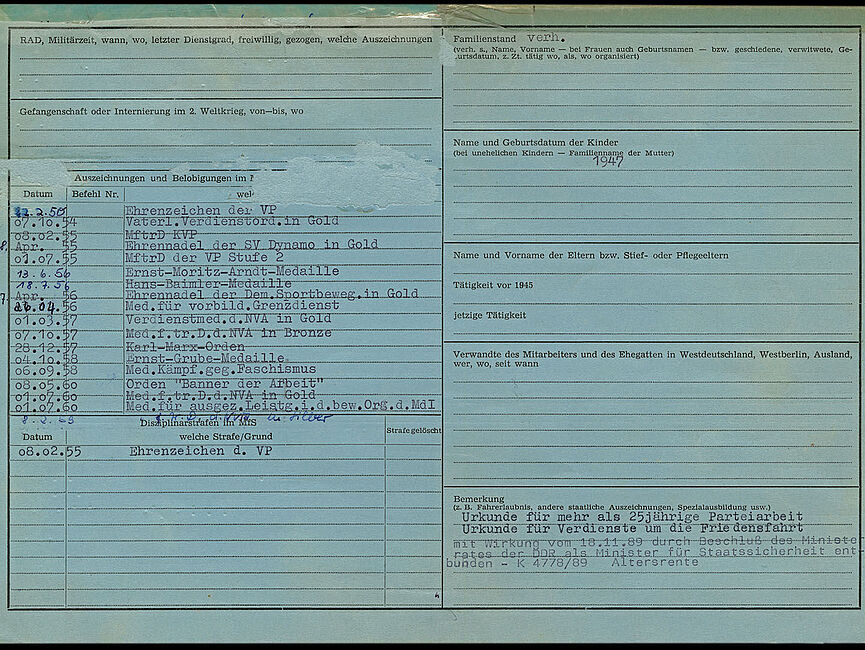 RAD, Militärzeit, wann, wo, letzter Dienstgrad, freiwillig, gezogen, welche Auszeichnungen
Gefangenschaft oder Internierung im 2. Weltkrieg, von—bis, wo
Auszeichnungen und Belobigungen im
Datum Befehl Nr. wel
2.56 Ehrenzeichen der VP
07.10.54 Vaterl.Verdienstord.in Gold
08.02.55 MftrD KVP
8. Apr. 55 Ehrennadel der SV Dynamo in Gold
01.07.55 MftrD der VP Stufe 2
13.6.56 Ernst-Moritz-Arndt-Medaille
18.7.56 Hans-Baimler-Medaille
7. Apr. 56 Ehrennadel der Dem.Sportbeweg.in Gold
26.04.56 Med.für vorbild.Grenzdienst
01.03.57 Verdienstmed.d.NVA in Gold
07.10.57 Med.f.tr.D.d.NVA in Bronze
28.12.57 Karl-Marx-Orden
04.10.58 Ernst-Grube-Medaille
06.09.58 Med.Kämpf.geg.Faschismus
08.05.60 Orden "Banner der Arbeit"
01.07.60 Med.f.tr.D.d.NVA in Gold
01.07.60 Med.für ausgez.Leistg.i.d.bew.Org.d.MdI
8.2. in Silber
Disziplinarstrafen im MfS
Datum welche Strafe/Grund Strafe gelöscht
08.02.55 Ehrenzeichen d. VP
Familienstand verh.
(verh. s., Name, Vorname — bei Frauen auch Geburtsnamen — bzw. geschiedene, verwitwete, Ge-
burtsdatum, z. Zt. tätig wo, als, wo organisiert)
Name und Geburtsdatum der Kinder
(bei unehelichen Kindern — Familienname der Mutter)
1947
Name und Vorname der Eltern bzw. Stief- oder Pflegeeltern
Tätigkeit vor 1945
jetzige Tätigkeit
Verwandte des Mitarbeiters und des Ehegatten in Westdeutschland, Westberlin, Ausland,
wer, wo, seit wann
Bemerkung
(z. B. Fahrerlaubnis, andere staatliche Auszeichnungen, Spezialausbildung usw.)
Urkunde für mehr als 25jährige Parteiarbeit
Urkunde für Verdienste um die Friedensfahrt
mit Wirkung vom 18.11.89 durch Beschluß des Minister
rates der DDR als Minister für Staatssicherheit ent-
bunden - K 4778/89 Altersrente